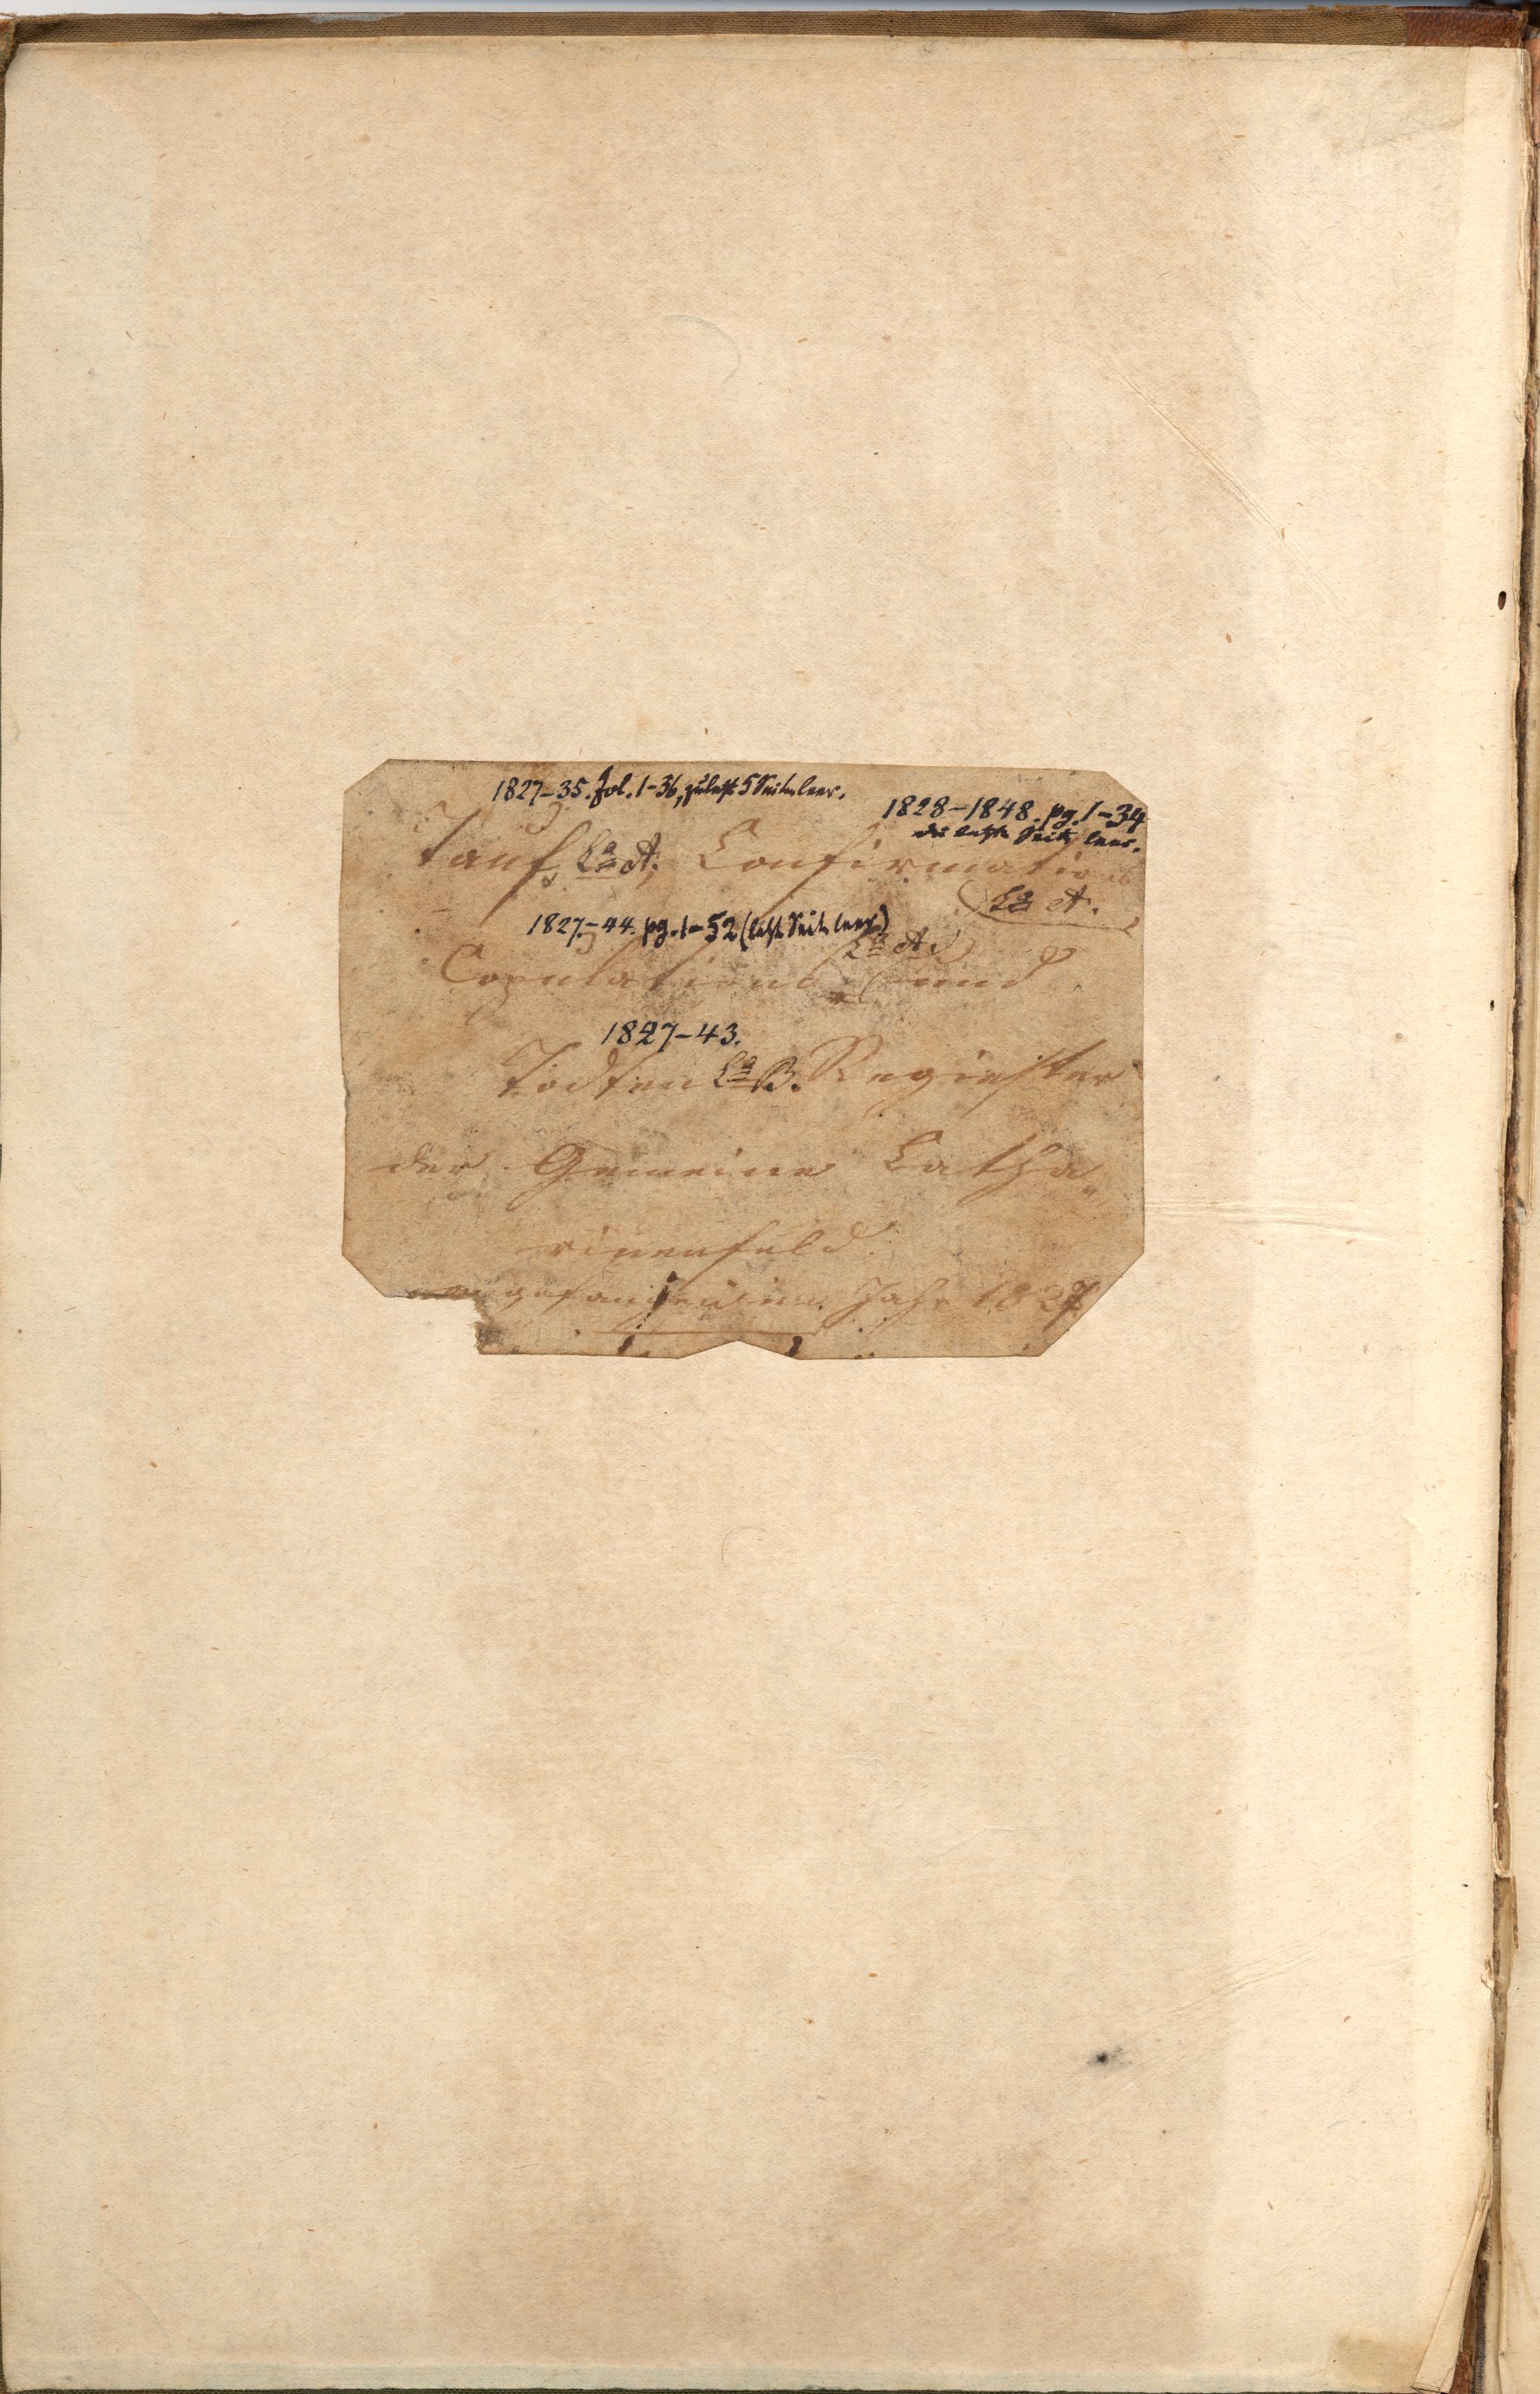 1827–35. Fol. 1–36, zuletzt 5 Seiten leer.
1828–1848. pg. 1–34
die letzte Seite leer.
Tauf, La A, Confirmations
La A.
1827–44. pg. 1–52 (letzte Seite leer)
La A.
Copulations, und
1827–43.
Todten La B. Register
der Gemeine Catha„
rinenfeld.
angefangen im Jahr 1827